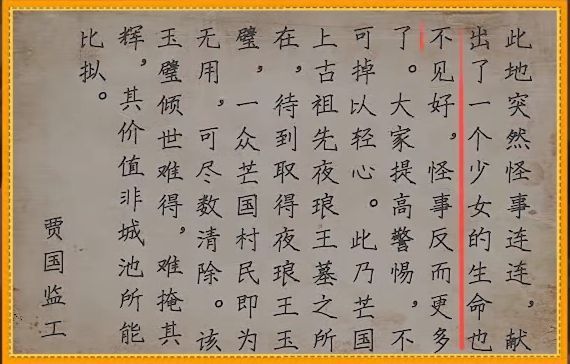 此地突然怪事连连，献
出了一个少女的生命也
不见好，怪事反而更多
了。大家提高警惕，不
可掉以轻心。此乃芒国
上古祖先夜琅王墓之所
在，待到取得夜琅王玉
璧，一众芒国村民即为
无用，可尽数清除。该
玉璧倾世难得，难掩其
辉，其价值非城池所能
比拟。
贾国监工